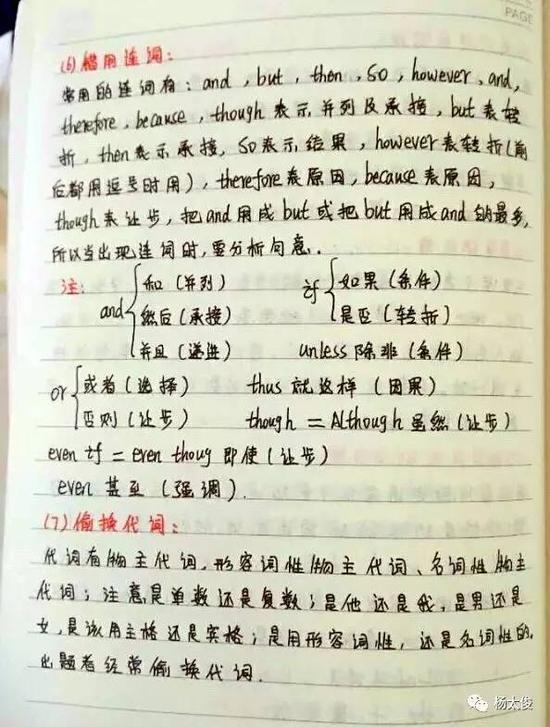 PAGE
(6)错用连词：
常用的连词有：and，but，then，so，however，and，
therefore，because，though表示并列及承接，but表转
折，then表示承接，so表示结果，however表转折(前
后都用逗号时用)，therefore表原因，because表原因，
though表让步，把and用成but或把but用成and的最多，
所以当出现连词时，要分析句意．
注： 和（并列） if 如果（条件）
and 然后（承接） 是否（转折）
并且（递进） unless 除非（条件）
or 或者（选择） thus 就这样（因果）
否则（让步） though = Although 虽然（让步）
even if = even thoug 即使（让步）
even 甚至（强调）．
(7)偷换代词：
代词有物主代词，形容词性物主代词、名词性物主
代词；注意是单数还是复数；是他还是我，是男还是
女，是该用主格还是宾格；是用形容词性，还是名词性的，
出题者经常偷换代词．
杨太俊